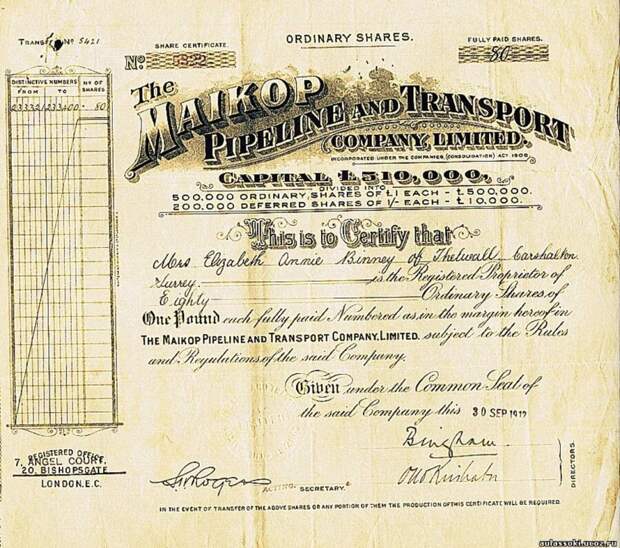 TRANSFER No 5421
SHARE CERTIFICATE.
ORDINARY SHARES.
FULLY PAID SHARES.
No.
80
DISTINCTIVE NUMBERS
No OF SHARES
FROM TO
233321 233400 80
The
MAIKOP
PIPELINE AND TRANSPORT
COMPANY, LIMITED.
INCORPORATED UNDER THE COMPANIES (CONSOLIDATION) ACT 1908
CAPITAL £510,000,
DIVIDED INTO
500,000 ORDINARY SHARES OF £1 EACH - £500,000.
200,000 DEFERRED SHARES OF 1/- EACH - £10,000.
This is to Certify that
Mrs Elizabeth Annie Binney of Thelwall Carshalton
Surrey is the Registered Proprietor of
Eighty Ordinary Shares of
One Pound each fully paid Numbered as in the margin hereof in
THE MAIKOP PIPELINE AND TRANSPORT COMPANY, LIMITED. subject to the Rules
and Regulations of the said Company.
Given under the Common Seal of
the said Company this 30 SEP 1912
Bingham
DIRECTORS.
REGISTERED OFFICE
7, ANGEL COURT,
20, BISHOPSGATE
LONDON. E.C.
Rogers
ACTING SECRETARY.
IN THE EVENT OF TRANSFER OF THE ABOVE SHARES OR ANY PORTION OF THEM THE PRODUCTION OF THIS CERTIFICATE WILL BE REQUIRED
aufassoki.ucoz.ru